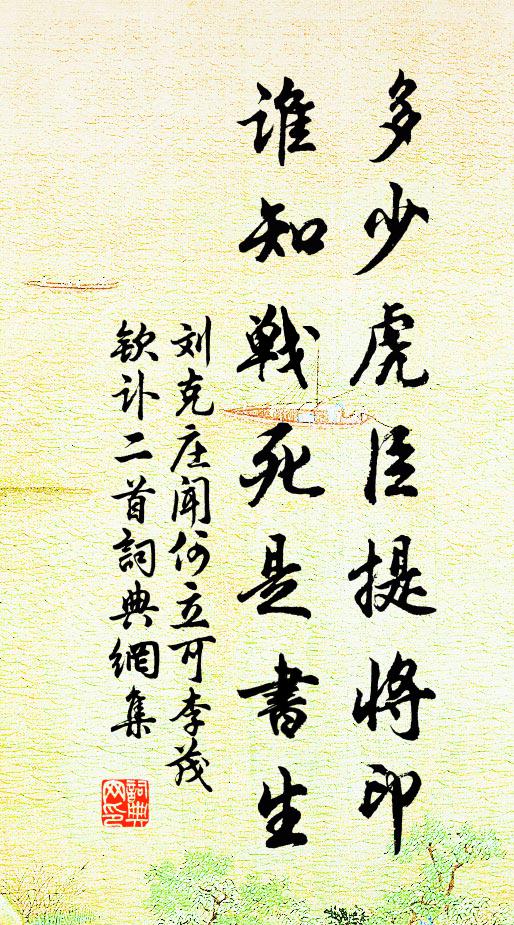 多少虎臣提将印
谁知戦死是書生
刘克庄闻何立可李茂
钦讣二首詞典網集
詞典
网印